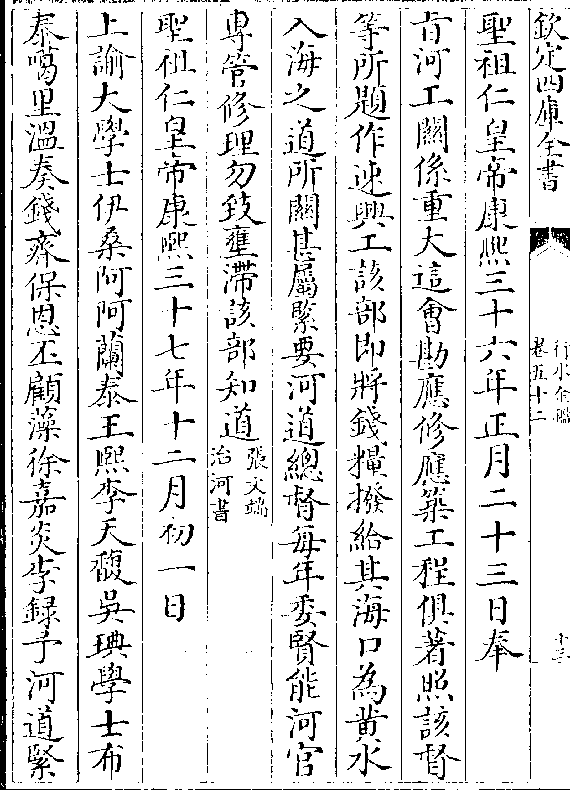 欽定四庫全書
行水金鑑
卷五十二
十三
聖祖仁皇帝康熙三十六年正月二十三日奉
㫖河工關係重大這會勘應修應築工程俱著照該督
等所題作速興工該部即將錢糧撥給其海口為黄水
入海之道所關甚屬緊要河道總督每年委賢能河官
專管修理勿致壅滯該部知道
張文端
治河書
聖祖仁皇帝康熙三十七年十二月初一日
上諭大學士伊桑阿阿蘭泰王熙李天馥吳琠學士布
泰噶里溫奏錢齊保恩丕顧藻徐嘉炎李録予河道緊